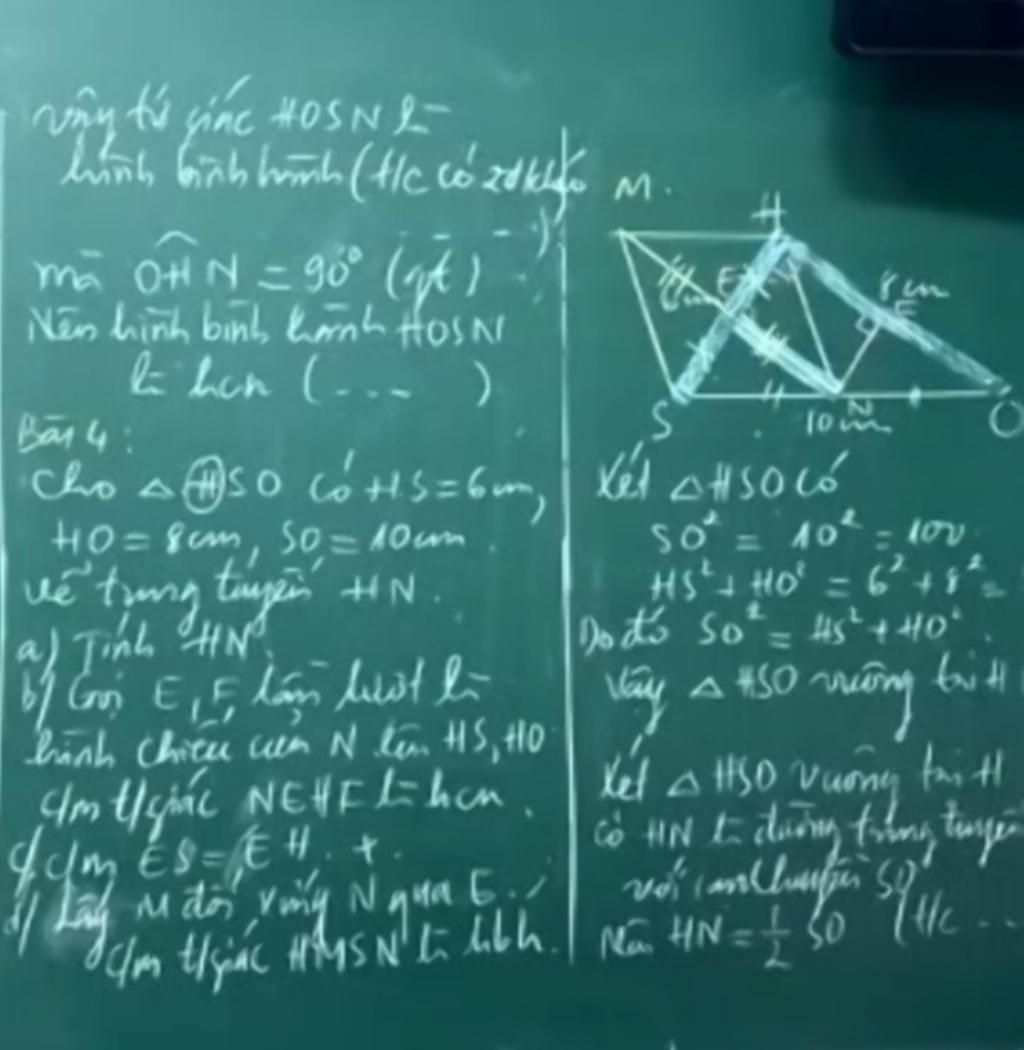 vậy tứ giác HOSN là
hình bình hành (t/c có 2đ chéo
- - - -)
mà OHN = 90° (gt)
Nên hình bình hành HOSN
là hcn (... )
Bài 4:
Cho △ HSO có HS = 6cm,
HO = 8cm, SO = 10cm
vẽ trung tuyến HN.
a) Tính HN
b) Gọi E, F, lần lượt là
hình chiếu của N lên HS, HO
c/m t/giác NEHF là hcn.
c/ c/m ES = EH.
d/ Lấy M đối xứng N qua E.
c/m t/giác HMSN là hbh.
M
H
6cm
E
8cm
S
N
10cm
O
Xét △HSO có
SO² = 10² = 100
HS² + HO² = 6² + 8² =
Do đó SO² = HS² + HO².
Vậy △ HSO vuông tại H
Xét △ HSO vuông tại H
có HN là đường trung tuyến
với cạnh huyền SO
Nên HN = 1/2 SO (t/c ...